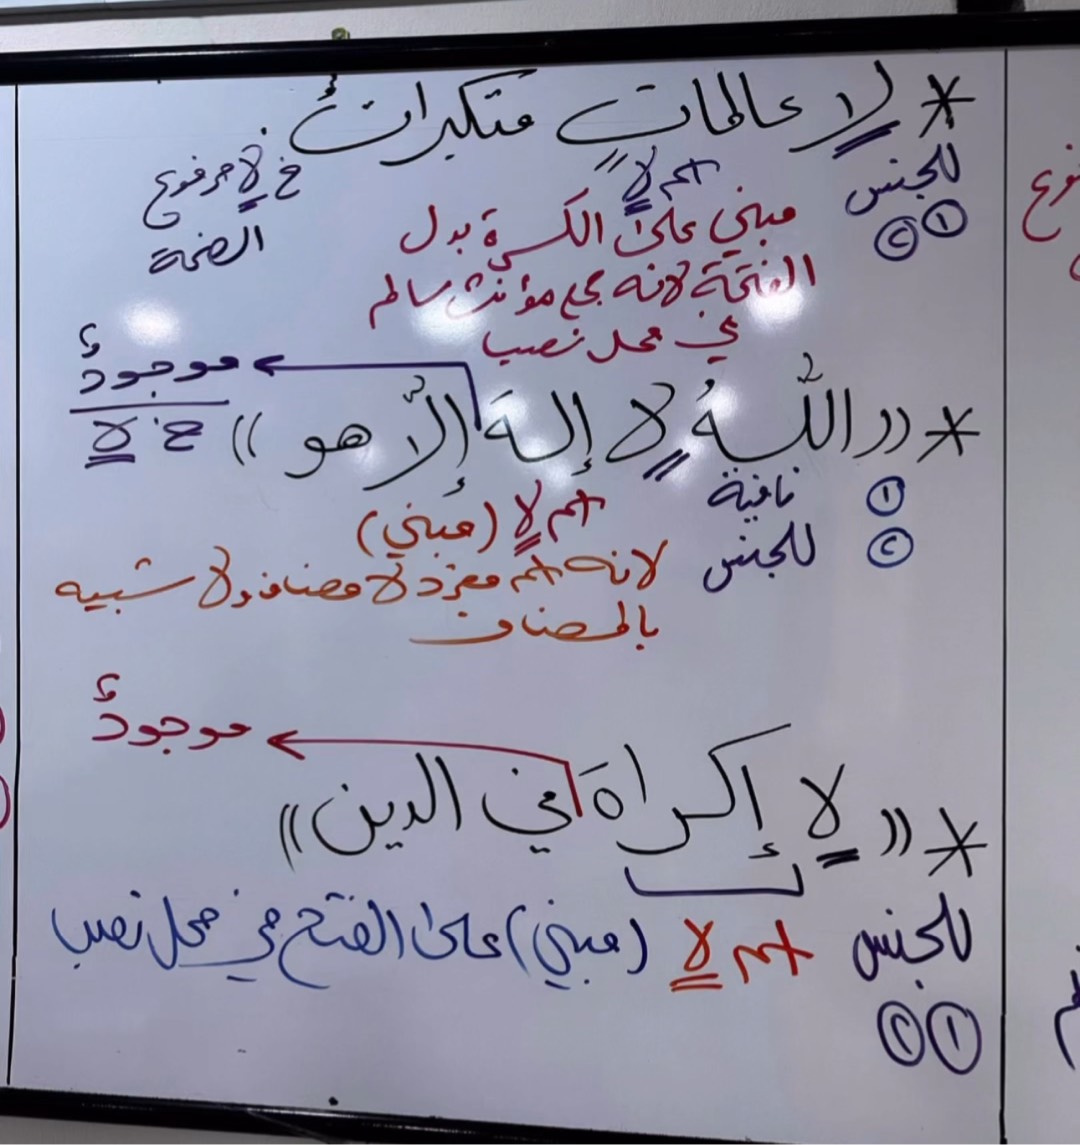 * لا عالماتِ متكبراتٌ
للجنس
① ②
اسم لا
خ لا مرفوع
الضمة
مبني على الكسرة بدل
الفتحة لانه جمع مؤنث سالم
في محل نصب
موجودٌ
* (( اللَّهُ لا إلهَ إلَّا هو ))
خ. لا
① نافية
② للجنس
اسم لا (مبني)
لانه اسم مفرد لا مضاف ولا شبيه
بالمضاف
موجودٌ
* (( لا إكراهَ في الدين ))
للجنس
① ②
اسم لا (مبني) على الفتح في محل نصب